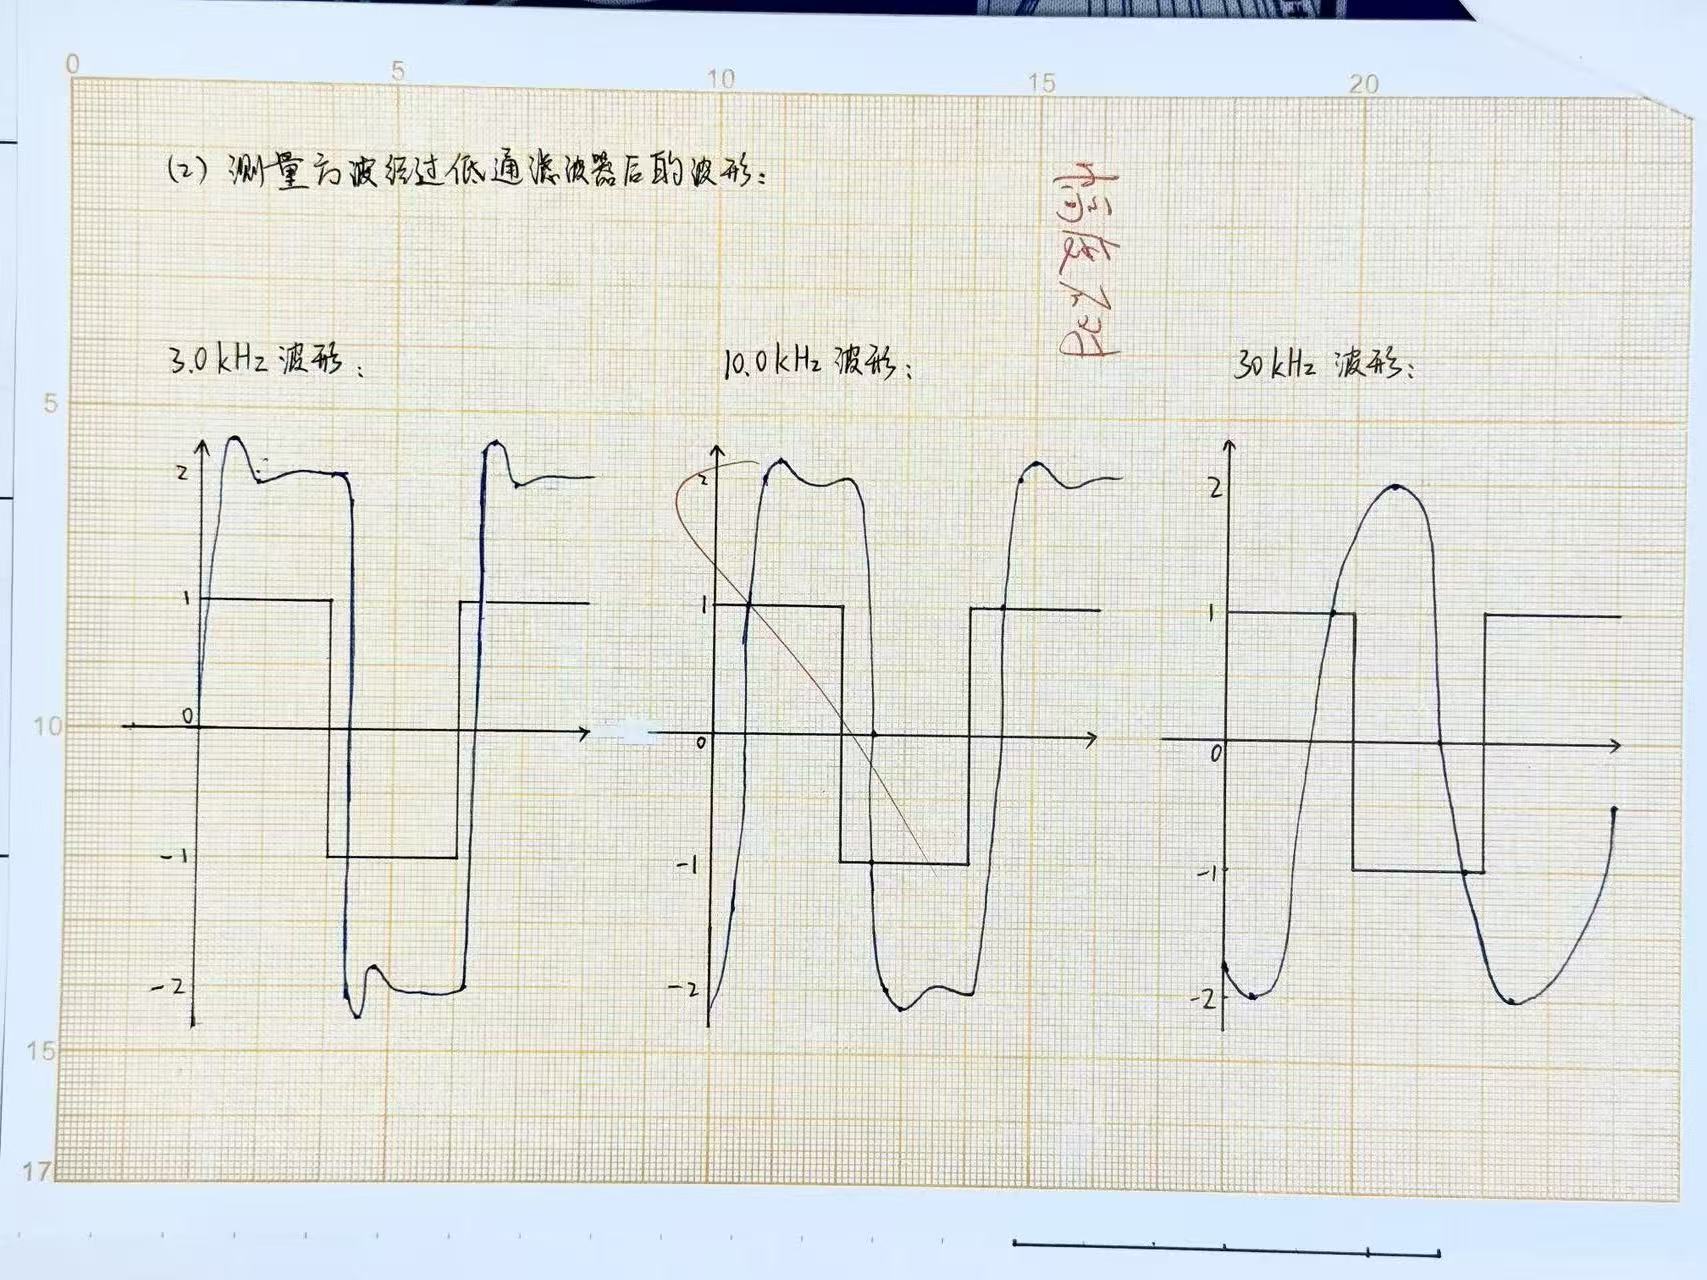 0 5 10 15 20
(2) 测量方波经过低通滤波器后的波形：
3.0 kHz 波形： 10.0 kHz 波形： 30 kHz 波形：
5
2 2 2
1 1 1
10
0 0 0
-1 -1 -1
-2 -2 -2
15
17